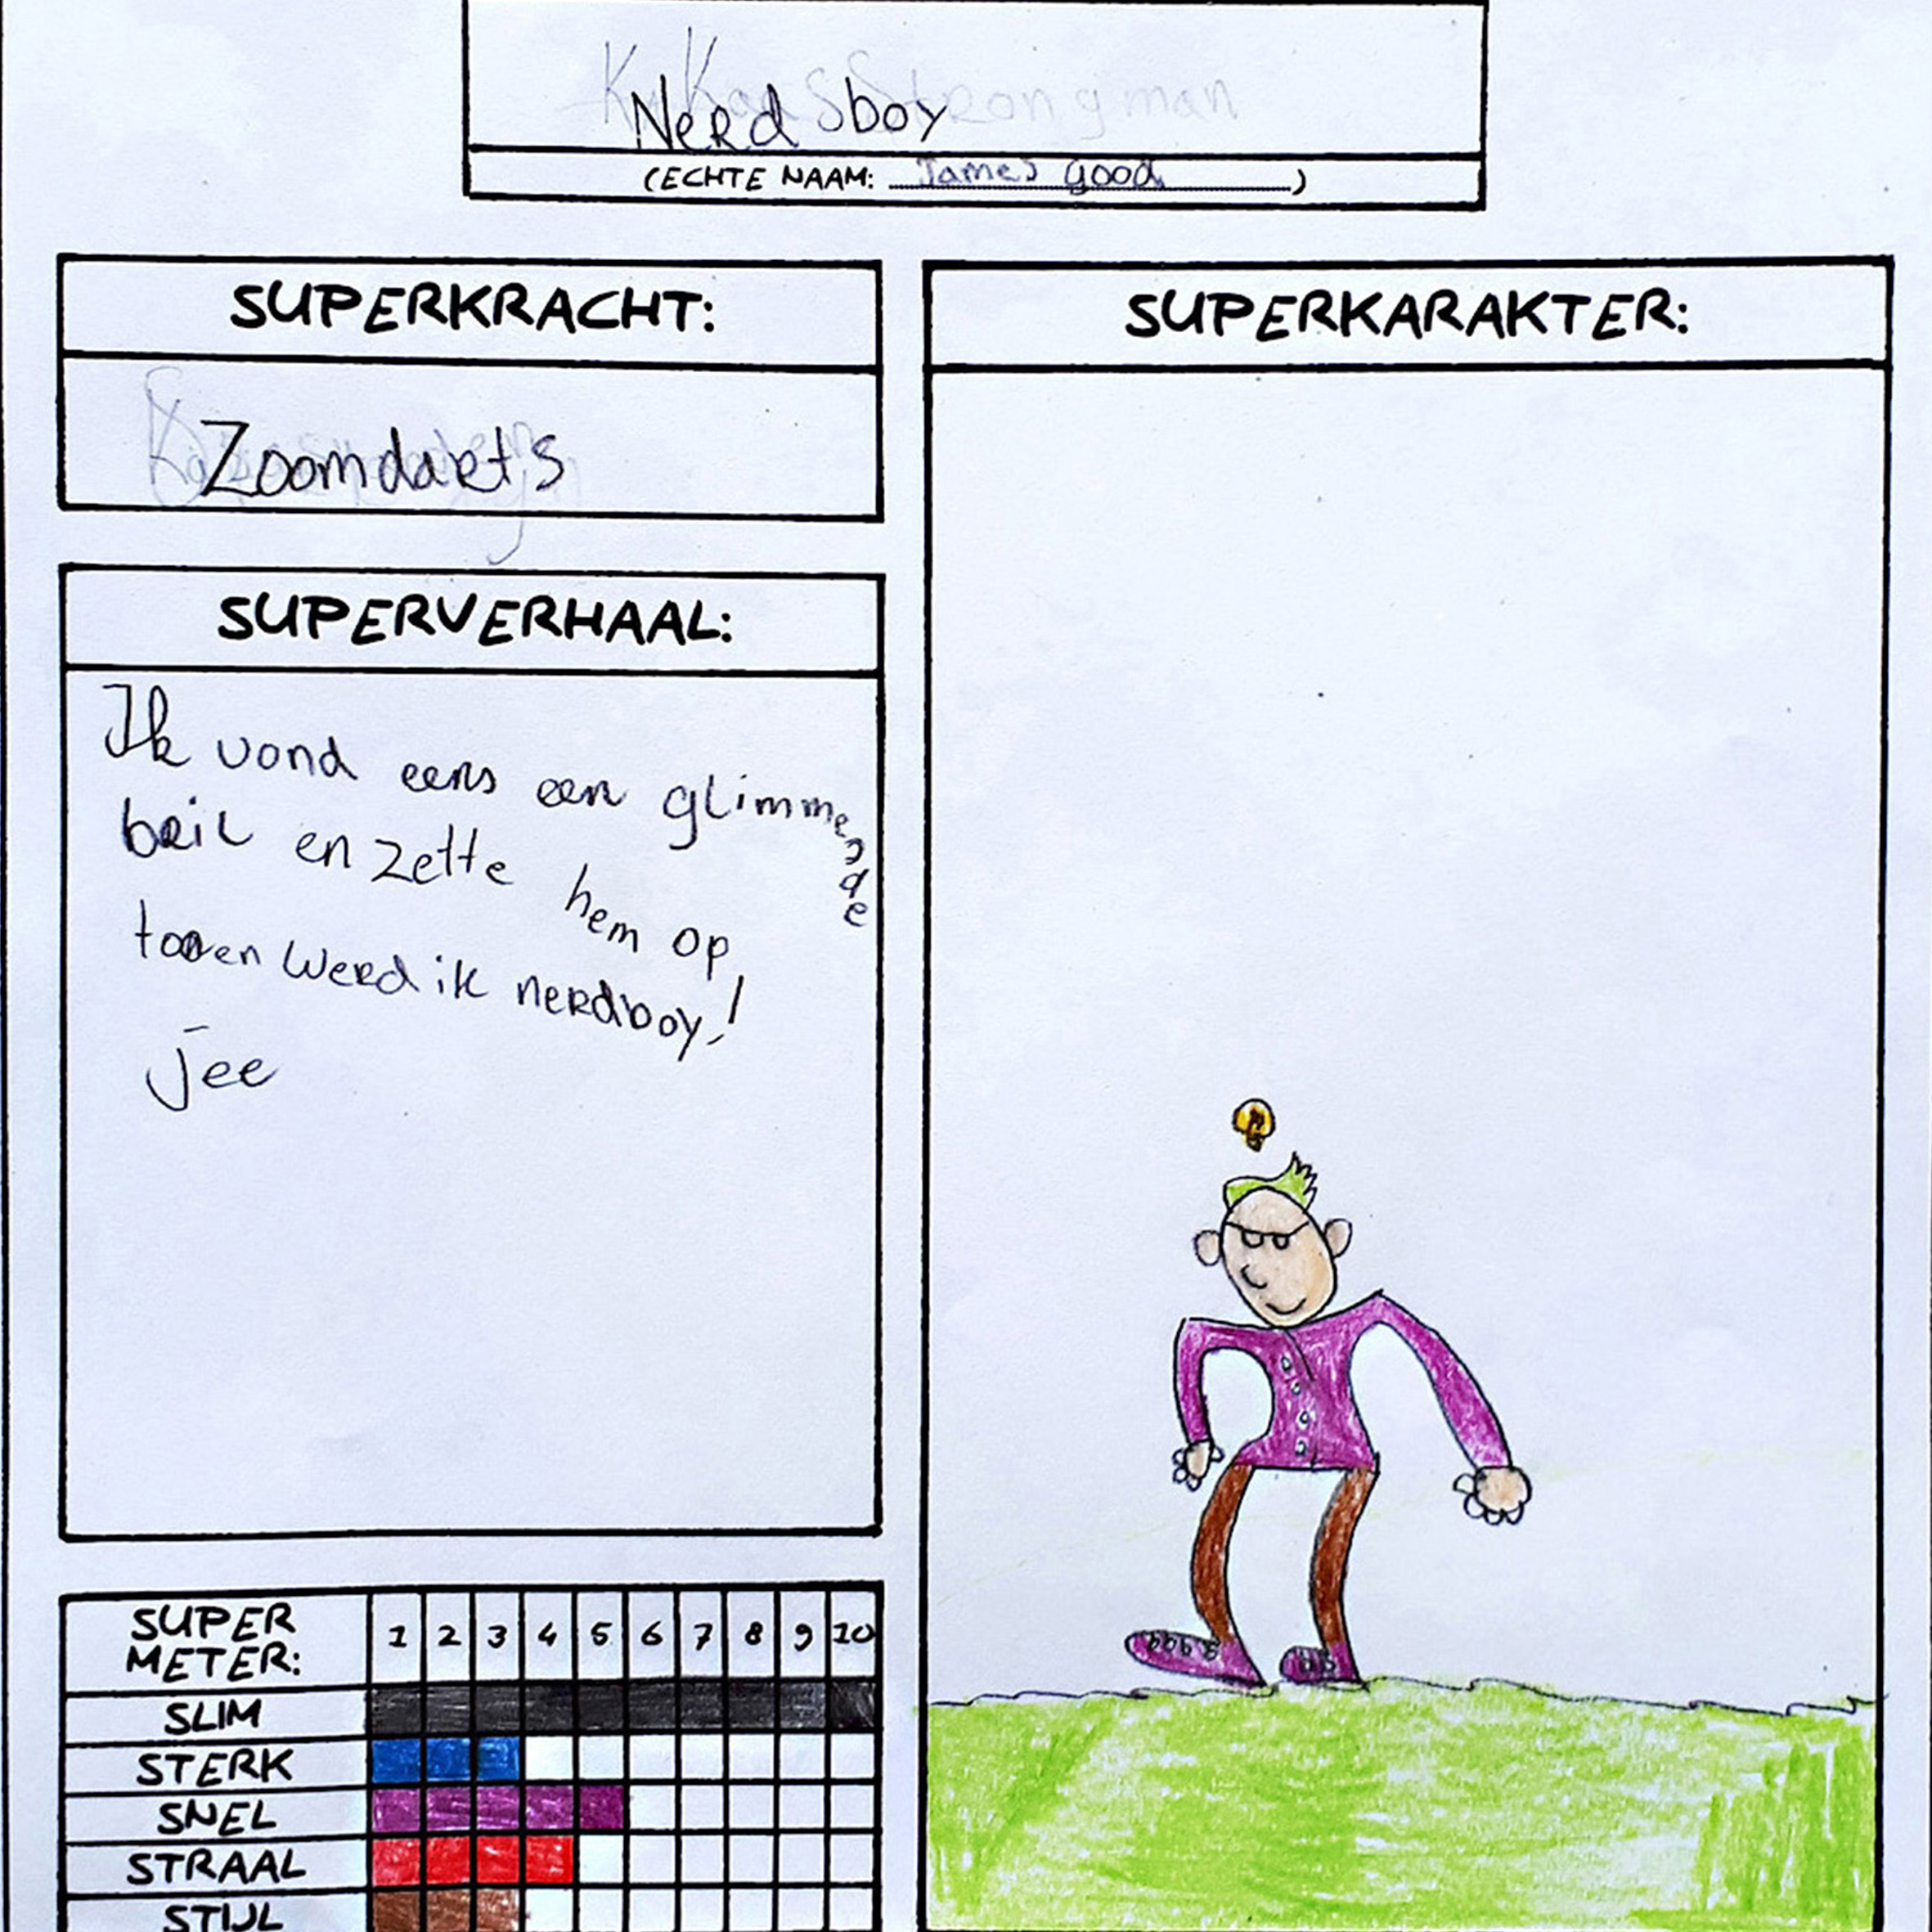 Nerdsboy
(ECHTE NAAM: James good)
SUPERKRACHT:
Zoomdart's
SUPERVERHAAL:
Ik vond eens een glimmende
bril en zette hem op
toen werd ik nerdboy!
jee
SUPERKARAKTER:
SUPER
METER:
1 2 3 4 5 6 7 8 9 10
SLIM
STERK
SNEL
STRAAL
STIJL